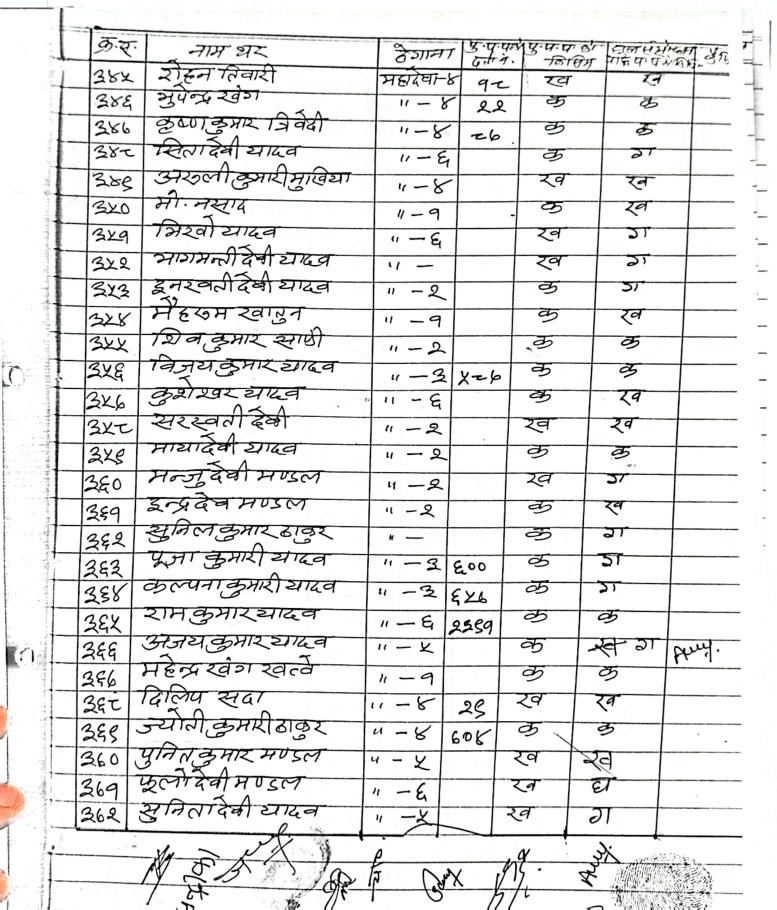 क्र.स. नाम थर ठेगाना
३४५ रोहन तिवारी महादेवा-४ १८ ख ख
३४६ भुपेन्द्र खंग "-४ २२ क क
३४७ कृष्ण कुमार त्रिवेदी "-४ ८७ क क
३४८ सितादेवी यादव "-६ क ग
३४९ अरुली कुमारी मुखिया "-४ ख ख
३५० मो. नसाद "-१ क ख
३५१ भिखो यादव "-६ ख ग
३५२ भागमन्ती देवी यादव "- ख ग
३५३ इनरवती देवी यादव "-२ क ग
३५४ मैहरुम खातुन "-१ क ख
३५५ शिव कुमार साफी "-२ क क
३५६ विजय कुमार यादव "-३ ५८७ क क
३५७ कुशेश्वर यादव "-६ क ख
३५८ सरस्वती देवी "-२ ख ख
३५९ मायादेवी यादव "-२ क क
३६० मन्जु देवी मण्डल "-२ ख ग
३६१ इन्द्रदेव मण्डल "-२ क ख
३६२ सुनिल कुमार ठाकुर "- क ग
३६३ पूजा कुमारी यादव "-३ ६०० क ग
३६४ कल्पना कुमारी यादव "-३ ६५७ क ग
३६५ राम कुमार यादव "-६ २२९१ क क
३६६ अजय कुमार यादव "-५ क ख ग
३६७ महेन्द्र खंग खत्वे "-१ क क
३६८ दिलिप सदा "-४ २९ ख ख
३६९ ज्योती कुमारी ठाकुर "-४ ७०४ क क
३७० पुनित कुमार मण्डल "-५ ख ख
३७१ फूलो देवी मण्डल "-६ ख घ
३७२ सुनिता देवी यादव "-५ ख ग